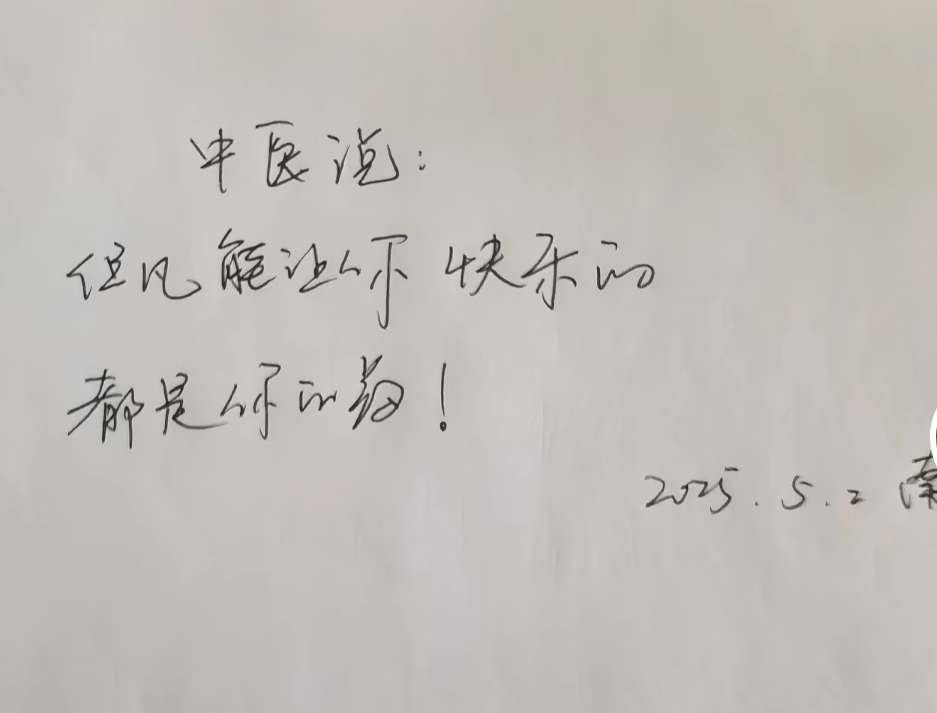 中医说:
但凡能让你快乐的
都是你的药!
2025.5.2